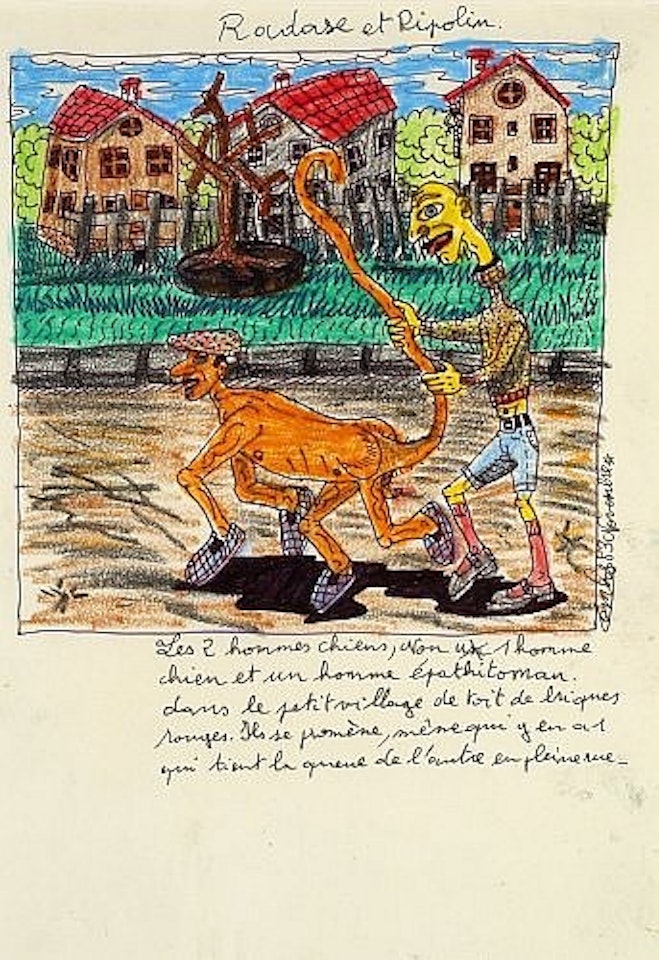 Radase et Ripolin.
Les 2 hommes chiens, non un 1 homme
chien et un homme épathitoman.
dans le petit village de toit de briques
rouges. Ils se promène, même qui y en a 1
qui tient la queue de l'autre en pleine rue_